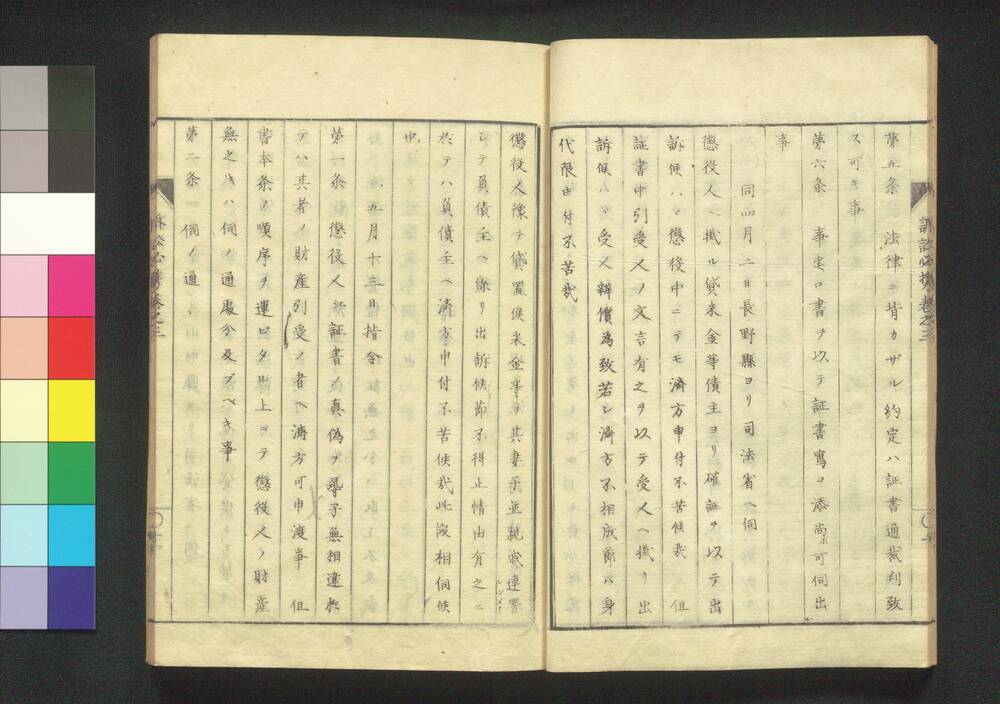 第五条　法律ニ背カザル約定ハ証書通裁判致
ス可キ事
第六条　事実口書ヲ以テ証書寫ヨ添尚可伺出
事
同四月二日長野縣ヨリ司法省ヘ伺
懲役人ヘ掛ル貸米金等債主ヨリ確証ヲ以テ出
訴候ハヽ懲役中ニテモ済方申付不苦候哉　但
証書中引受人ノ文言有之ヲ以テ受人ヘ掛リ出
訴候ハヽ受人辨償為致若シ済方不相成節ハ身
代限申付不苦哉
懲役人豫テ貸置候米金等ヲ其妻子並親戚連署
シテ負債主ヘ係リ出訴候節不得止情由有之ニ
於テハ負債主ヘ済方申付不苦候哉此段相伺候
也
五月十三日指令
第一条　懲役人証書ノ真偽ヲ尋子無相違於
テハ其者ノ財産引受ノ者ヘ済方可申渡事　但
書本条ノ順序ヲ運ビタル上ニテ懲役人ノ財産
無之キハ伺ノ通處分及ブベキ事
第二条　伺ノ通
訴訟必携巻之三
訴訟必携巻之三